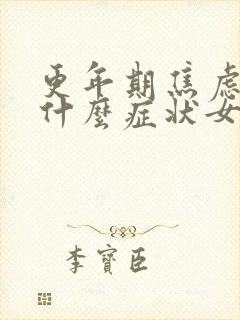 更年期焦虑
什麼症狀女
李寶臣